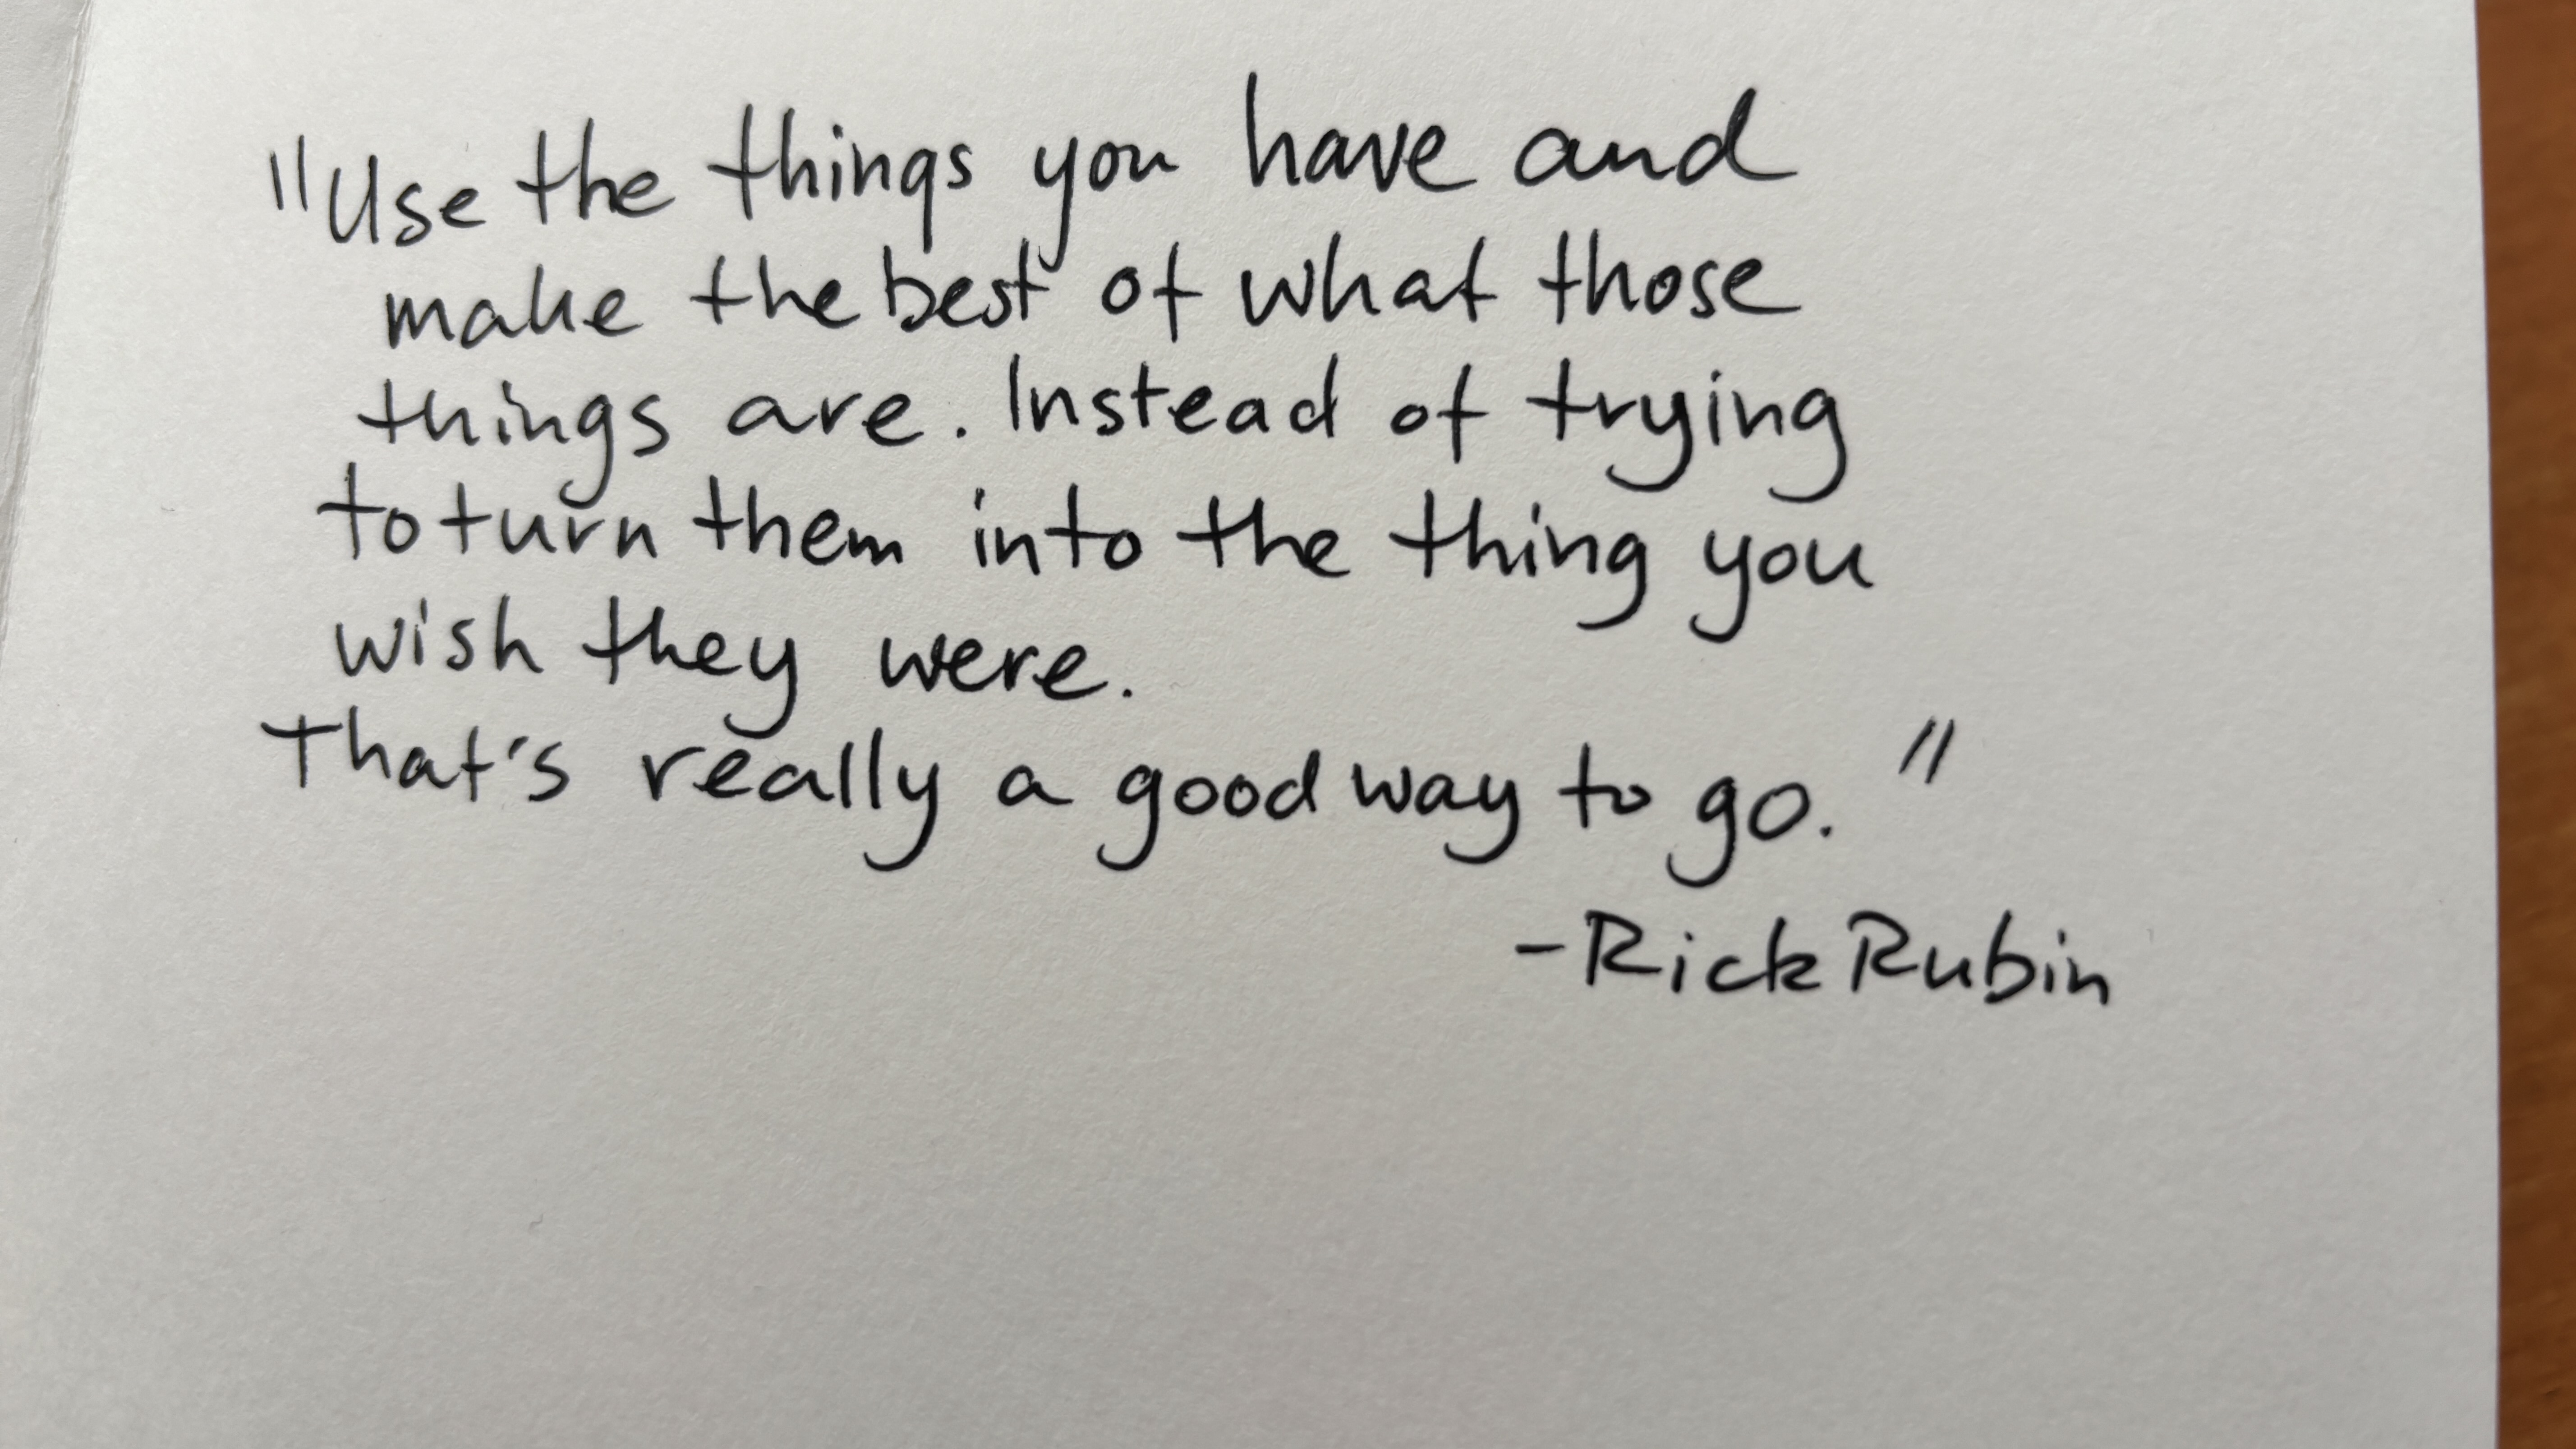 "Use the things you have and
make the best of what those
things are. Instead of trying
to turn them into the thing you
wish they were.
That's really a good way to go."
- Rick Rubin